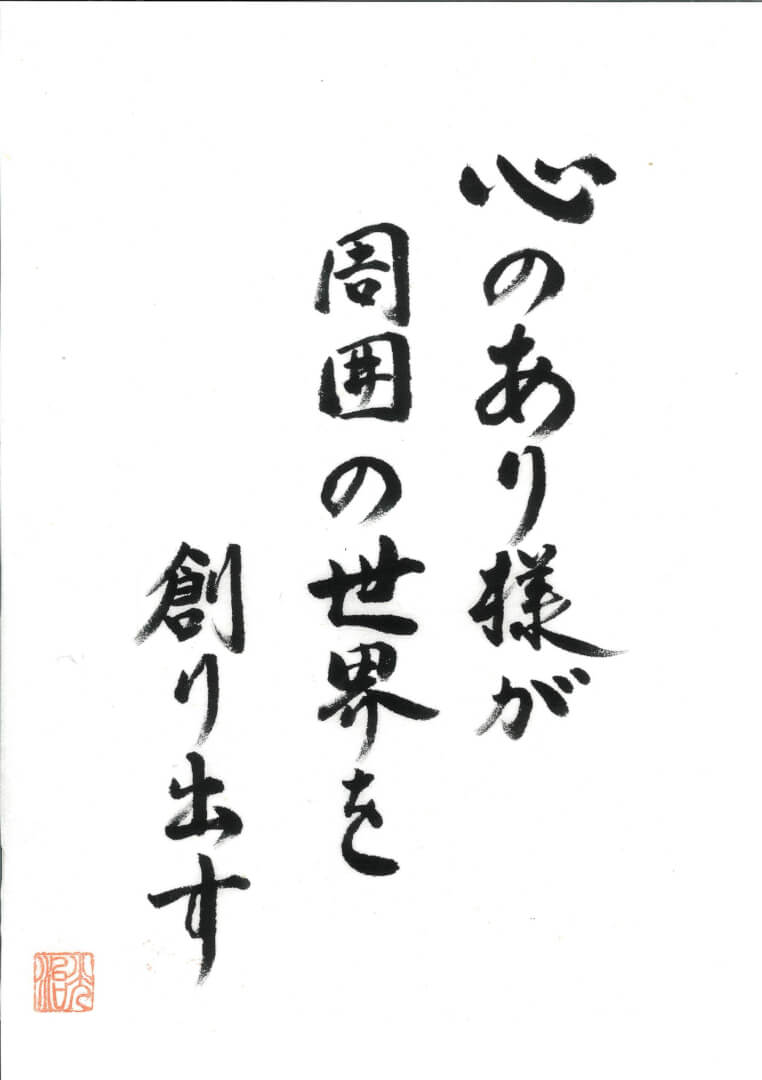 心のあり様が
周囲の世界を
創り出す